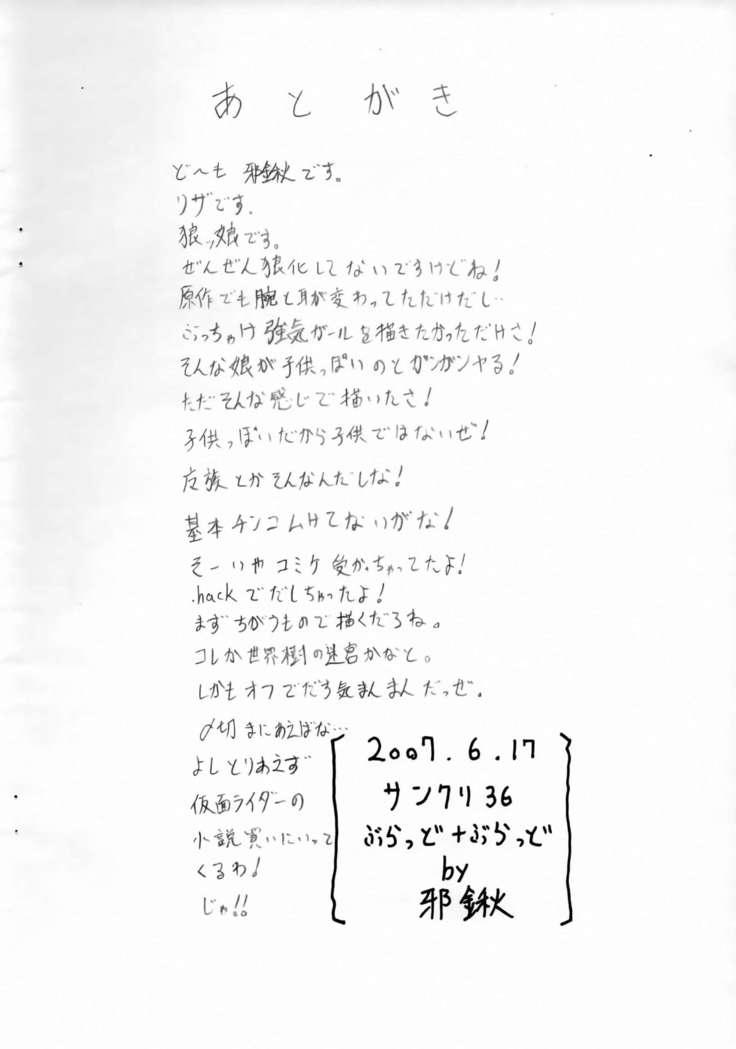 あとがき
ど〜も 邪鍬です。
リザです.
狼ッ娘です。
ぜんぜん狼化してないですけどね!
原作でも腕と耳が変わってただけだし…
ぶっちゃけ強気ガールを描きたかっただけさ!
そんな娘が子供っぽいのとガンガンヤる!
ただそんな感じで描いたさ!
子供っぽいだから子供ではないぜ!
族とかそんなんだしな!
基本チンコムケてないがな!
そーいやコミケ受かっちゃってたよ!
.hackでだしちゃったよ!
まずちがうもので描くだろね。
コレか世界樹の迷宮かなと。
しかもオフでだす気まんまんだっぜ。
〆切まにあえばな…
よしとりあえず
仮面ライダーの
小説買いにいって
くるわ!
じゃ!!
2007.6.17
サンクリ36
ぶらっど+ぶらっど
by
邪鍬